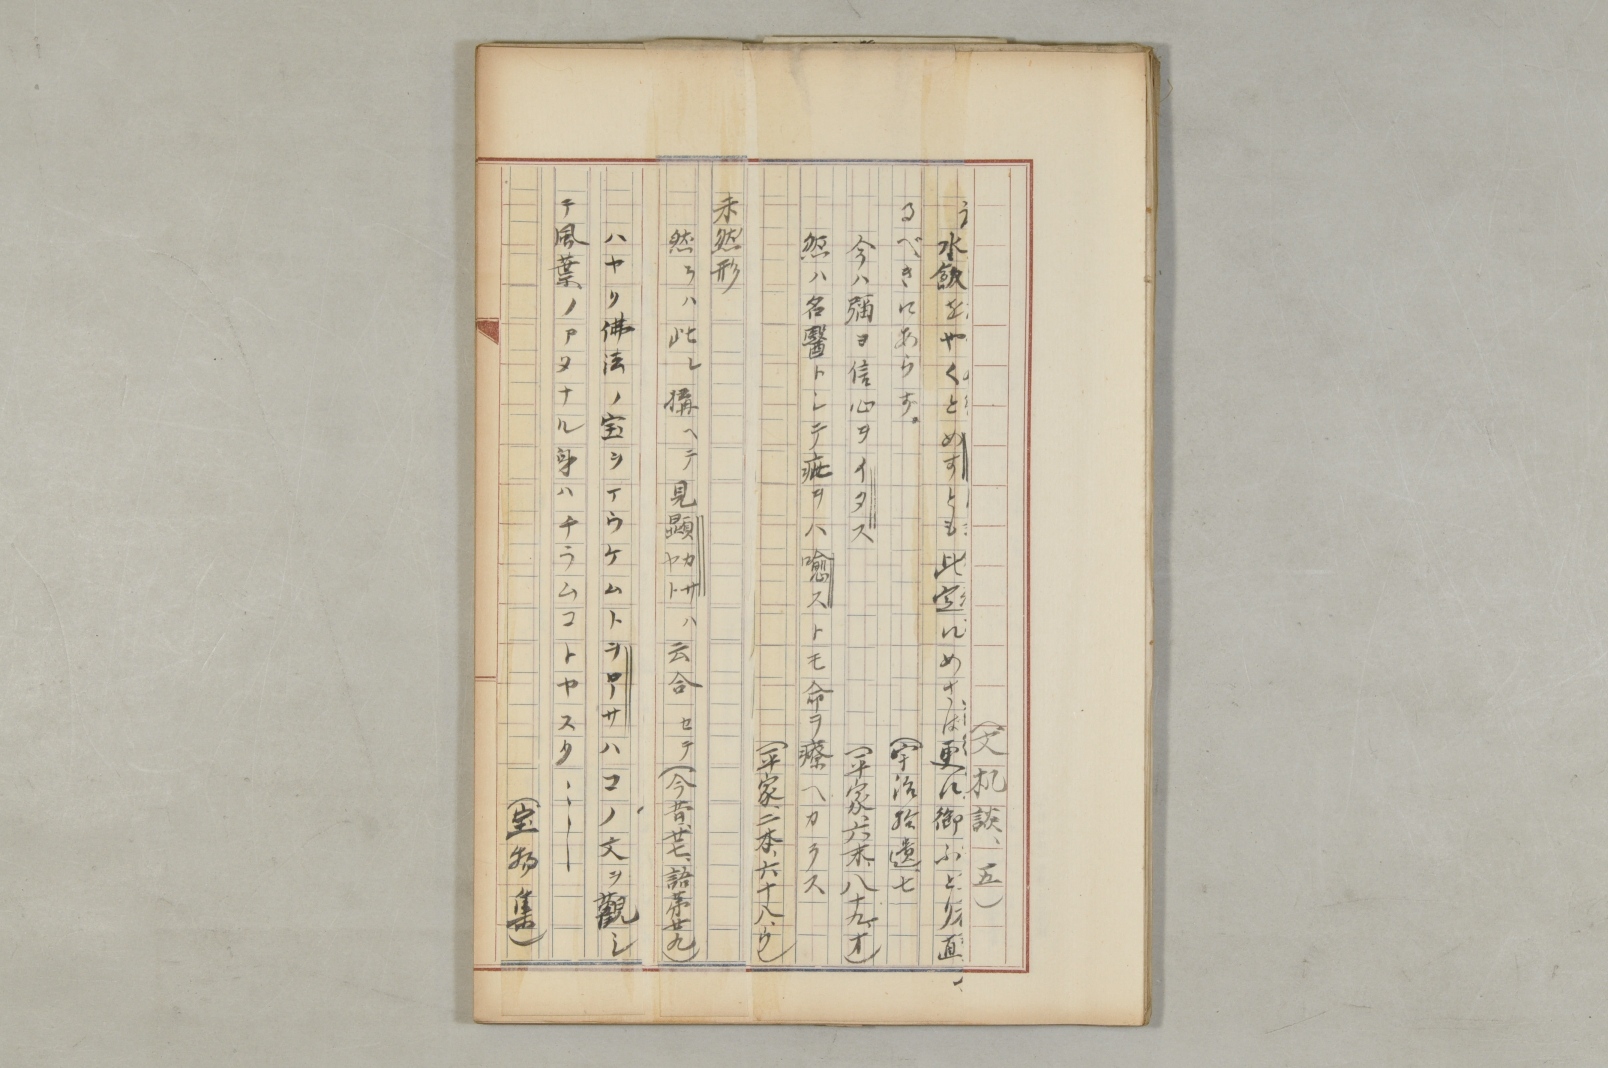 (文机談、五)
水飯をやくとめすとも此定にめさば更に御ふとり直
るべきにあらす。
(宇治拾遺、七
今ハ彌ヨ信心ヲイタス
(平家、六末、八十九、オ)
縦ハ名醫トシテ疵ヲハ愈ストモ命ヲ療ヘカラス
(平家、二本、六十八、ウ)
未然形
然ラハ此レ構ヘテ見顕カサハヤト云合セテ(今昔、廿七、語第廿九)
ハヤリ佛法ノ宝シイウケムトシローサハコノ文ヲ觀シ
テ風葉ノアタナル身ハチラムコトヤスク、、、――
(宝物集)